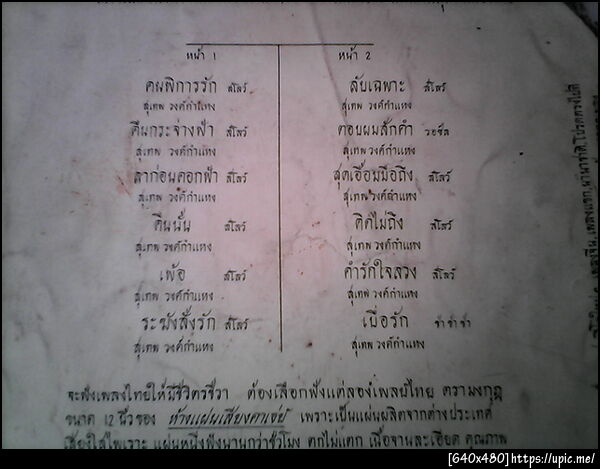 หน้า 1
คนพิการรัก สโลว์
สุเทพ วงศ์กำแหง
คืนกระจ่างฟ้า สโลว์
สุเทพ วงศ์กำแหง
ลาก่อนดอกฟ้า สโลว์
สุเทพ วงศ์กำแหง
คืนนั้น สโลว์
สุเทพ วงศ์กำแหง
เพ้อ สโลว์
สุเทพ วงศ์กำแหง
ระฆังสั่งรัก สโลว์
สุเทพ วงศ์กำแหง
หน้า 2
ลับเฉพาะ สโลว์
สุเทพ วงศ์กำแหง
ตอบผมสักคำ วอลซ์
สุเทพ วงศ์กำแหง
สุดเอื้อมมือถึง สโลว์
สุเทพ วงศ์กำแหง
คิดไม่ถึง สโลว์
สุเทพ วงศ์กำแหง
คำรักใจลวง สโลว์
สุเทพ วงศ์กำแหง
เบื่อรัก ช่า ช่า ช่า
สุเทพ วงศ์กำแหง
จะฟังเพลงไทยให้มีชีวิตชีวา ต้องเลือกฟังแต่ลองเพลย์ไทย ตรามงกุฎ
ขนาด 12 นิ้วของ ห้างแผ่นเสียงคาเธ่ย์ เพราะเป็นแผ่นผลิตจากต่างประเทศ
เสียงใสไพเราะ แผ่นหนึ่งฟังนานกว่าชั่วโมง ตกไม่แตก เนื้อจานละเอียด คุณภาพ
[640x480]https://upic.me/